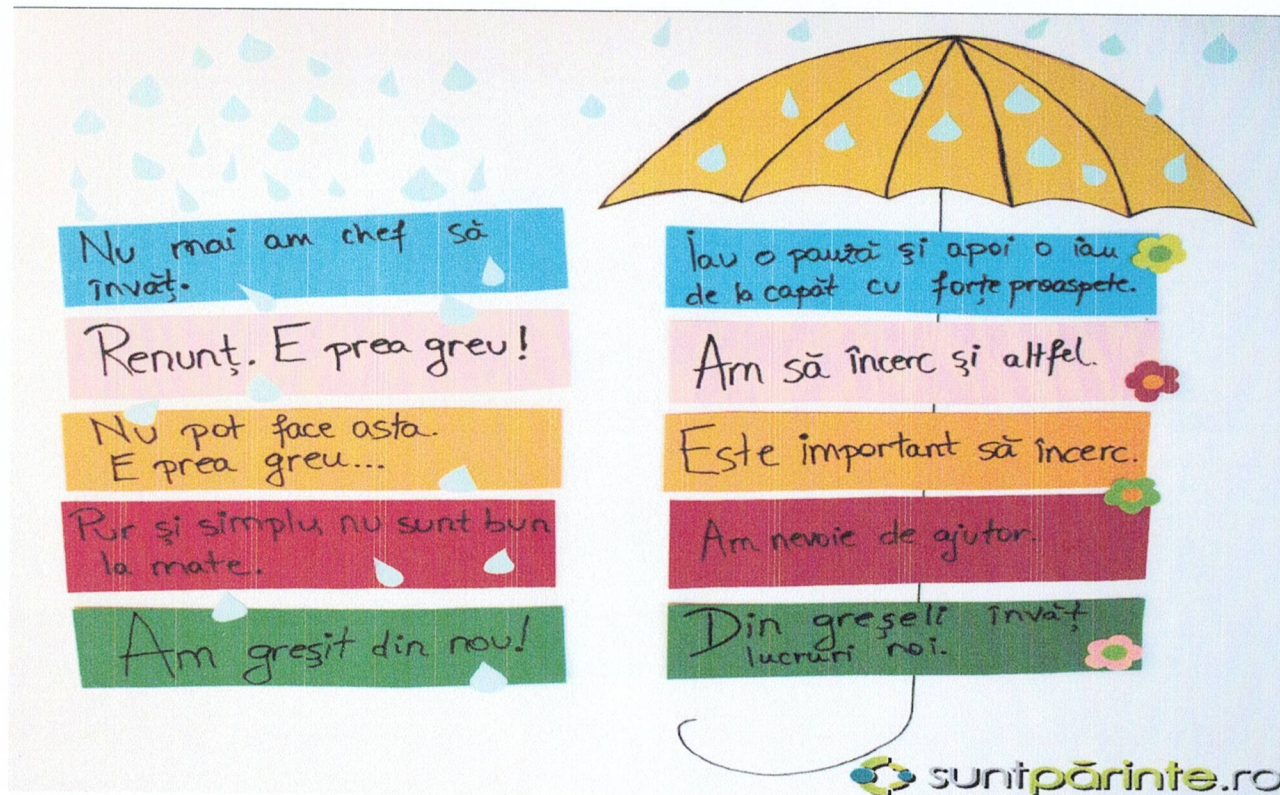 Nu mai am chef să
învăț.
Renunț. E prea greu!
Nu pot face asta.
E prea greu...
Pur și simplu nu sunt bun
la mate.
Am greșit din nou!
Iau o pauză și apoi o iau
de la capăt cu forțe proaspete.
Am să încerc și altfel.
Este important să încerc.
Am nevoie de ajutor.
Din greșeli învăț
lucruri noi.
suntpărinte.ro